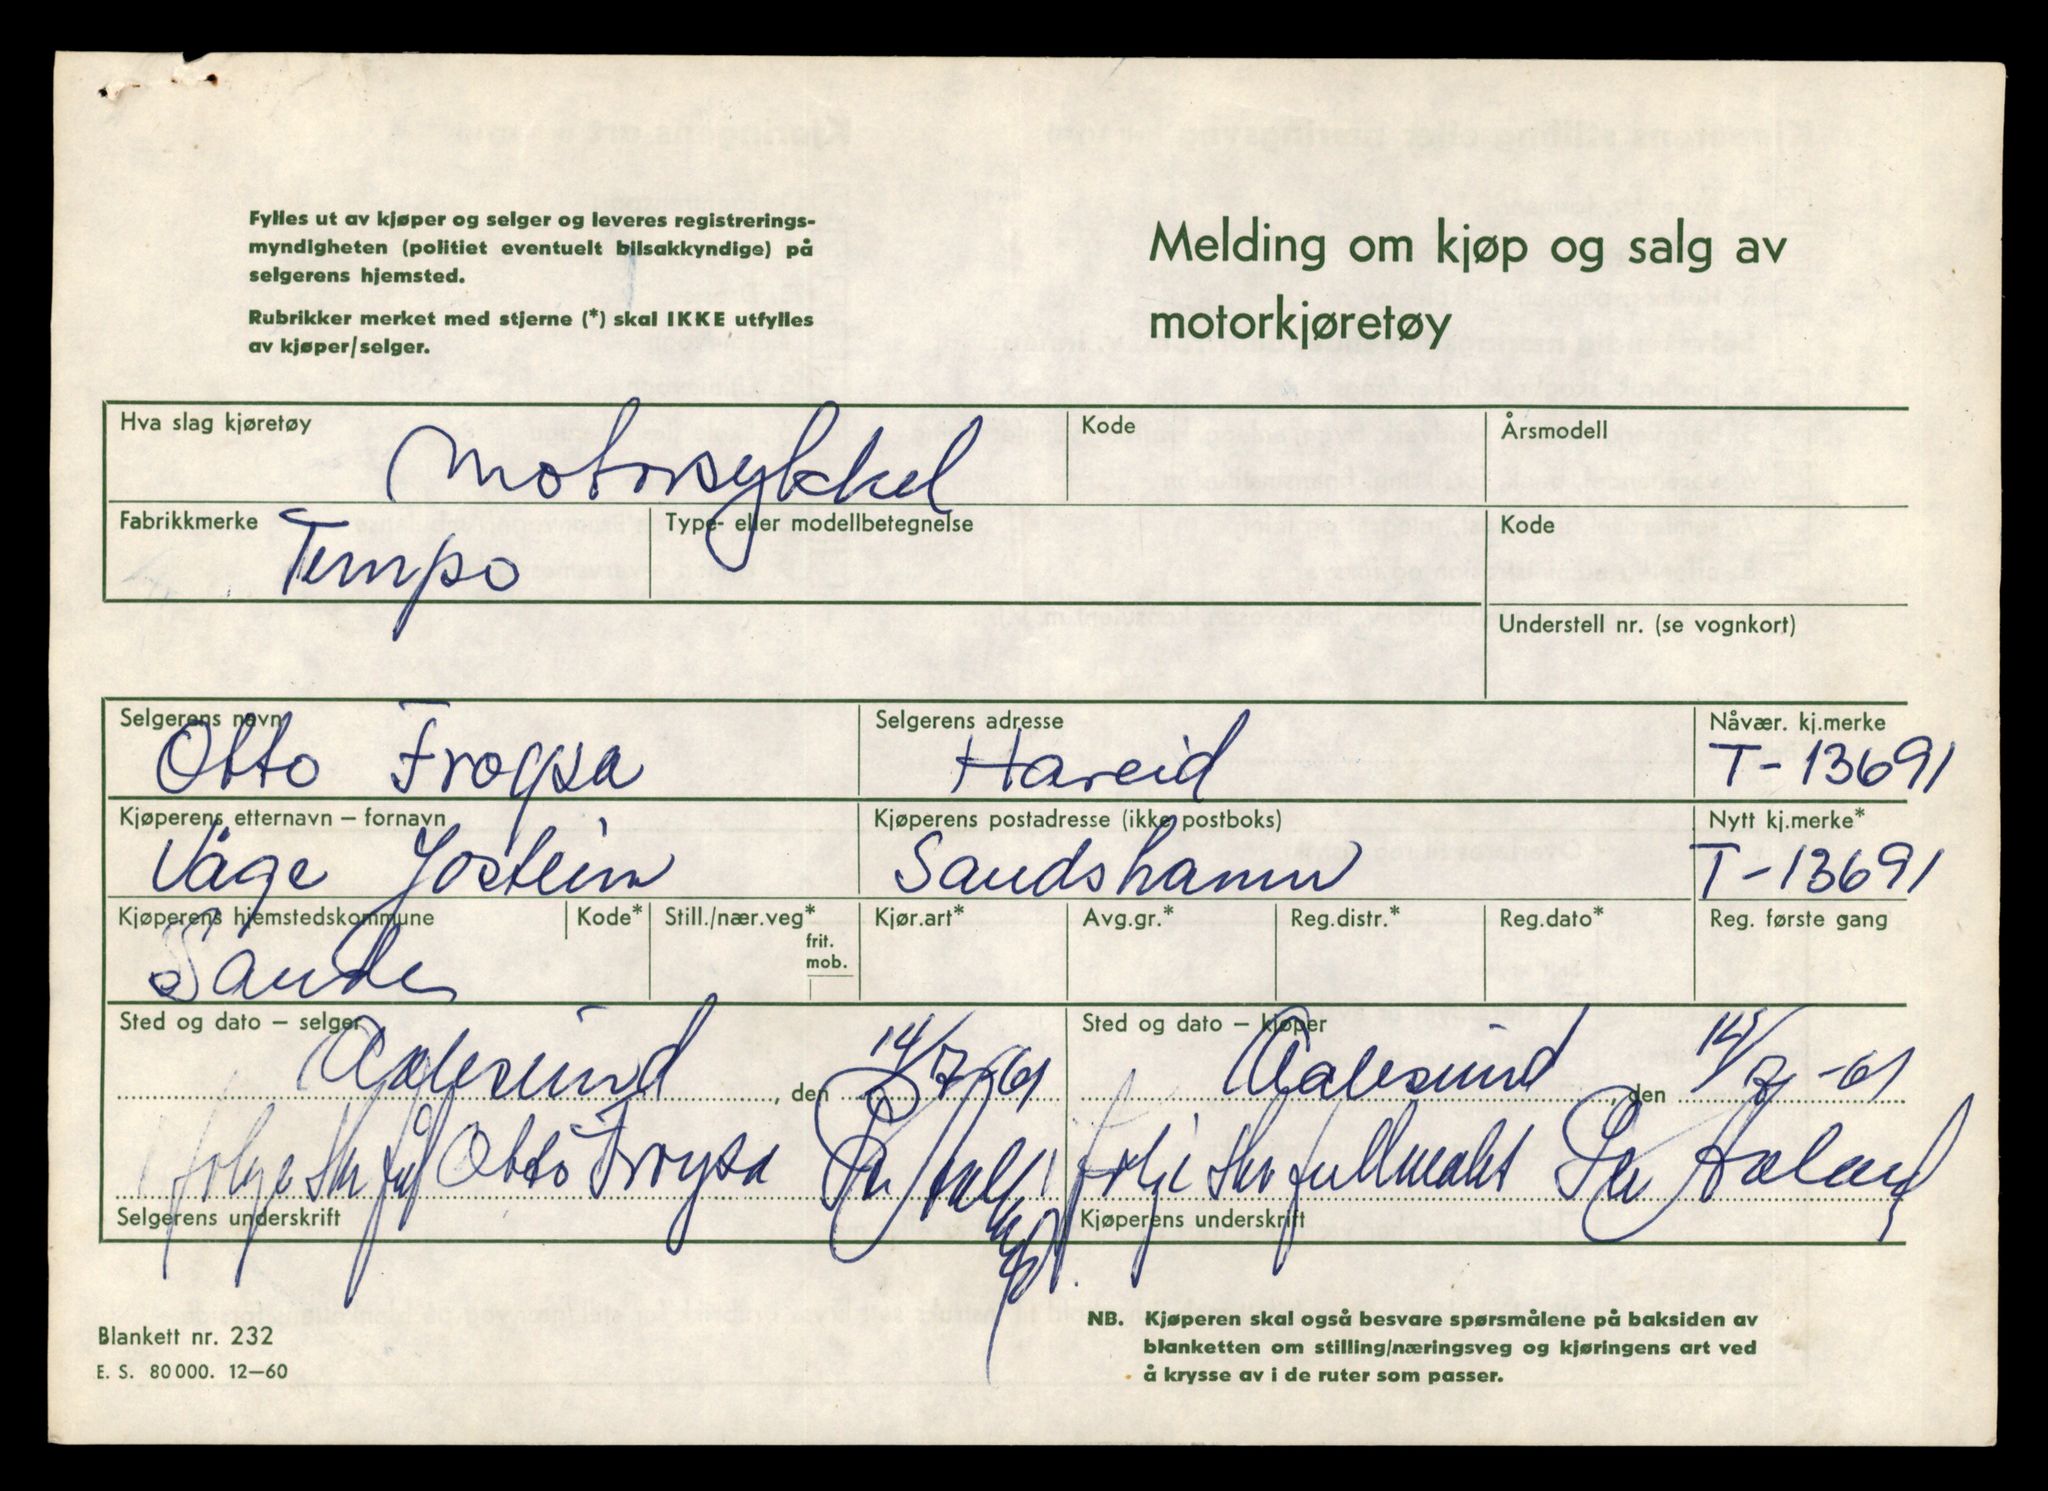 Fylles ut av kjøper og selger og leveres registrerings-
myndigheten (politiet eventuelt bilsakkyndige) på
selgerens hjemsted.
Rubrikker merket med stjerne (*) skal IKKE utfylles
av kjøper/selger.
Melding om kjøp og salg av
motorkjøretøy
Hva slag kjøretøy
Motorsykkel
Kode
Årsmodell
Fabrikkmerke
Tempo
Type- eller modellbetegnelse
Kode
Understell nr. (se vognkort)
Selgerens navn
Otto
Selgerens adresse
Hareid
Nåvær. kj.merke
T-13691
Kjøperens etternavn – fornavn
Våge Jostein
Kjøperens postadresse (ikke postboks)
Sandshamn
Nytt kj.merke*
T-13691
Kjøperens hjemstedskommune
Sande
Kode*
Still./nær.veg*
frit.
mob.
Kjør.art*
Avg.gr.*
Reg.distr.*
Reg.dato*
Reg. første gang
Sted og dato – selger
Aalesund, den 14/7-61
Sted og dato – kjøper
Aalesund, den 14/7-61
Otto
Selgerens underskrift
fullmakt
Kjøperens underskrift
Blankett nr. 232
E. S. 80000. 12–60
NB. Kjøperen skal også besvare spørsmålene på baksiden av
blanketten om stilling/næringsveg og kjøringens art ved
å krysse av i de ruter som passer.